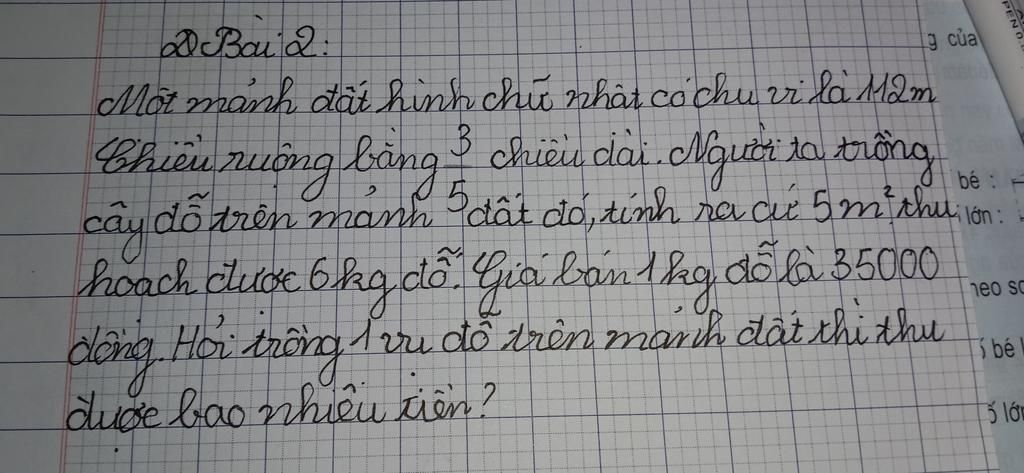 Bài 2:
Một mảnh đất hình chữ nhật có chu vi là 112m
Chiều ruộng bằng 3/5 chiều dài. Người ta trồng
cây đỗ trên mảnh đất đó, tính ra cứ 5m², thu
hoạch được 6kg đỗ. Giá bán 1kg đỗ là 35000
đồng. Hỏi trồng 1 vụ đỗ trên mảnh đất thì thu
được bao nhiêu tiền?
g của
bé :
lớn :
heo
bé
PEN